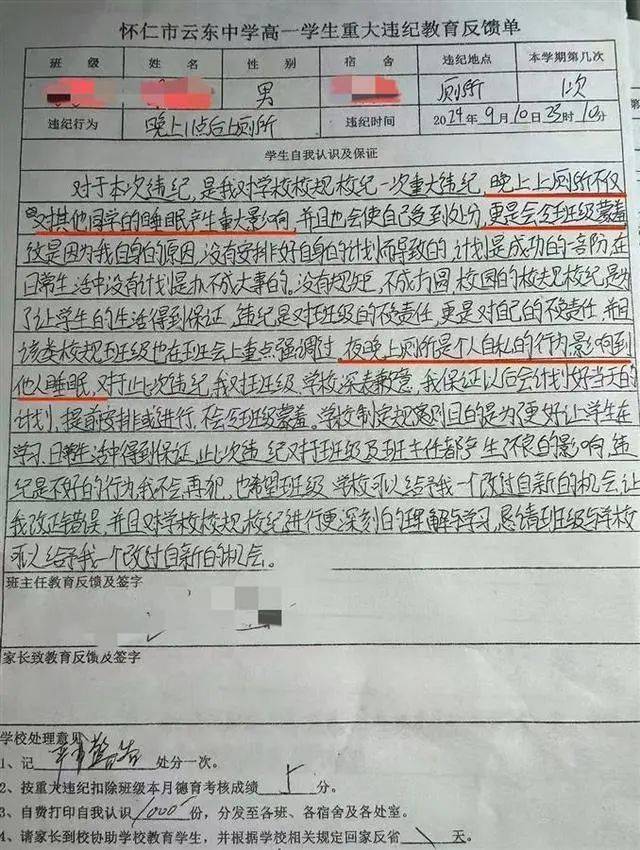 怀仁市云东中学高一学生重大违纪教育反馈单
班 级 姓 名 性 别 宿 舍 违纪地点 本学期第几次
男 厕所 1次
违纪行为 晚上11点后上厕所 违纪时间 2024年9月10日23时10分
学生自我认识及保证
对于本次违纪,是我对学校校规校纪一次重大违纪,晚上上厕所不仅
对其他同学的睡眠产生重大影响,并且也会使自己受到处分,更是会给班级蒙羞
这是因为我自身的原因,没有安排好自身的计划而导致的,计划是成功的一部阶,在
日常生活中没有计划是办不成大事的。没有规矩,不成方圆,校园的校规校纪是为
了让学生的生活得到保证,违纪是对班级的不负责任,更是对自己的不负责任,并且
该类校规班级也在班会上重点强调过,夜晚上厕所是个人自私的行为,影响到
他人睡眠,对于此次违纪,我对班级、学校深表歉意,我保证以后会计划好当天的
计划,提前安排或进行,不会给班级蒙羞。学校制定规则目的是为了更好让学生在
学习、日常生活中得到保证,此次违纪对于班级及班主任都产生了不良的影响,违
纪是不好的行为,我不会再犯,也希望班级、学校可以给予我一个改过自新的机会,让
我改正错误,并且对学校校规、校纪进行更深刻的理解与学习,恳请班级与学校
可以给予我一个改过自新的机会。
班主任教育反馈及签字
家长致教育反馈及签字
学校处理意见
1、记 严重警告 处分一次。
2、按重大违纪扣除班级本月德育考核成绩 5 分。
3、自费打印自我认识 1000 份,分发至各班、各宿舍及各处室。
4、请家长到校协助学校教育学生,并根据学校相关规定回家反省 \ 天。